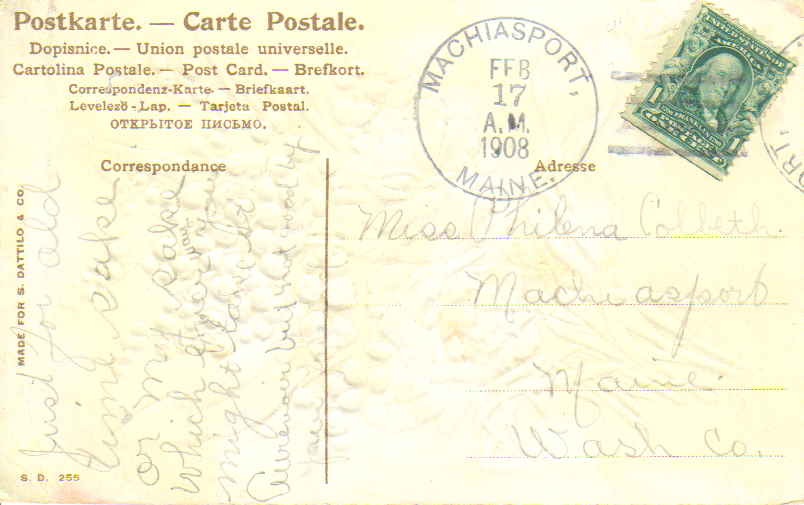 Postkarte. — Carte Postale.
Dopisnice. — Union postale universelle.
Cartolina Postale. — Post Card. — Brefkort.
Correspondenz-Karte. — Briefkaart.
Levelező-Lap. — Tarjeta Postal.
ОТКРЫТОЕ ПИСЬМО.
MACHIASPORT,
FEB
17
A.M.
1908
MAINE.
UNITED STATES OF AMERICA
1
1
ONE CENT
PORT,
Correspondance
Adresse
MADE FOR S. DATTILO & CO.
S. D. 255
Just for old
time sake
or my sake
which ever you
might have it
but not good by
Miss Philena Colbeth.
Machiasport
Maine.
Wash Co.